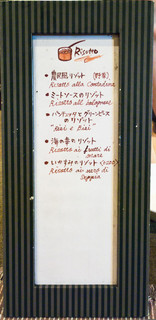 Risotto
・農民風リゾット (野菜)
Risotto alla Contadina
・ミートソースのリゾット
Risotto al bolognese
・パンチェッタとグリーンピース
のリゾット
"Risi e Bisi"
・海の幸のリゾット
Risotto ai frutti di
mare
・いかすみのリゾット
Risotto al nero di
Seppia